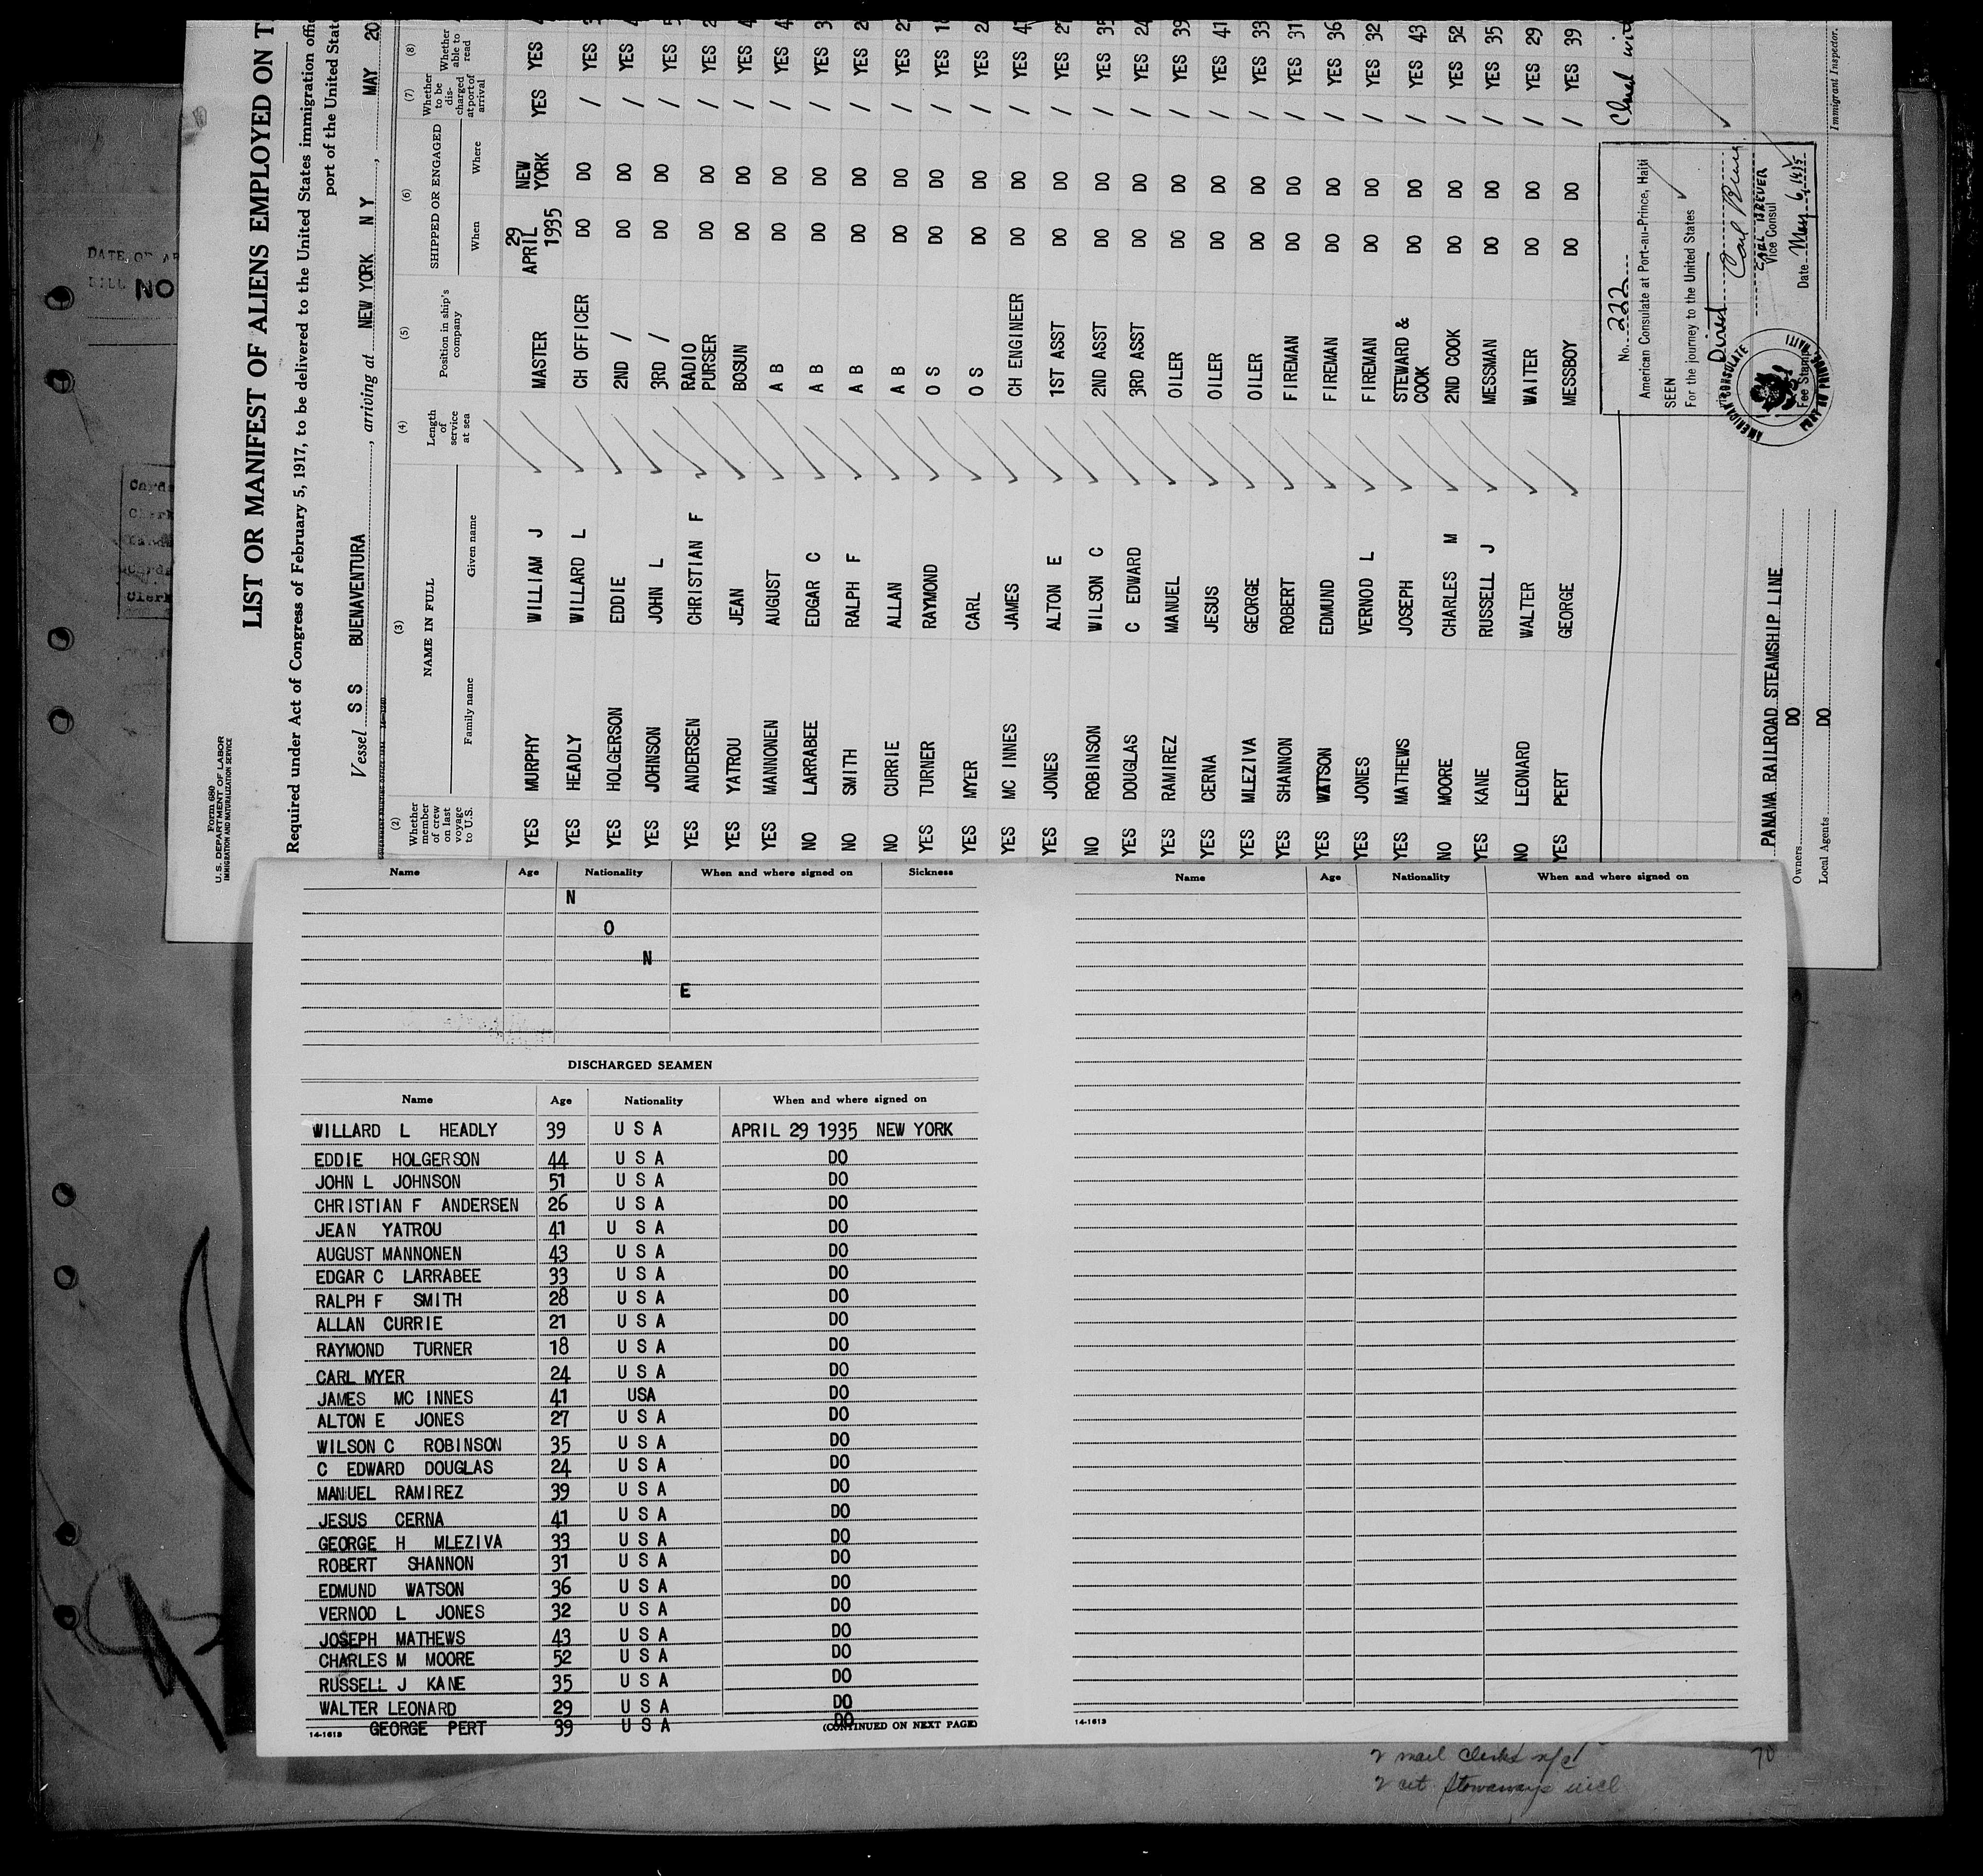 Form 680
U.S. DEPARTMENT OF LABOR
IMMIGRATION AND NATURALIZATION SERVICE
LIST OR MANIFEST OF ALIENS EMPLOYED ON T
Required under Act of Congress of February 5, 1917, to be delivered to the United States immigration offi
port of the United Stat
Vessel S S BUENAVENTURA, arriving at NEW YORK N Y, MAY 20
(2) (3) (4) (5) (6) (7) (8)
Whether member of crew on last voyage to U.S. NAME IN FULL Family name Given name Length of service at sea Position in ship's company SHIPPED OR ENGAGED When Where Whether to be discharged at port of arrival Whether able to read
YES MURPHY WILLIAM J MASTER 29 APRIL 1935 NEW YORK YES YES
YES HEADLY WILLARD L CH OFFICER DO DO / YES
YES HOLGERSON EDDIE 2ND / DO DO / YES
YES JOHNSON JOHN L 3RD / DO DO / YES
YES ANDERSEN CHRISTIAN F RADIO PURSER DO DO / YES
YES YATROU JEAN BOSUN DO DO / YES
YES MANNONEN AUGUST A B DO DO / YES
NO LARRABEE EDGAR C A B DO DO / YES
NO SMITH RALPH F A B DO DO / YES
NO CURRIE ALLAN A B DO DO / YES
YES TURNER RAYMOND O S DO DO / YES
YES MYER CARL O S DO DO / YES
YES MC INNES JAMES CH ENGINEER DO DO / YES
YES JONES ALTON E 1ST ASST DO DO / YES
NO ROBINSON WILSON C 2ND ASST DO DO / YES 35
YES DOUGLAS C EDWARD 3RD ASST DO DO / YES 24
YES RAMIREZ MANUEL OILER DO DO / YES 39
YES CERNA JESUS OILER DO DO / YES 41
YES MLEZIVA GEORGE OILER DO DO / YES 33
YES SHANNON ROBERT FIREMAN DO DO / YES 31
YES WATSON EDMUND FIREMAN DO DO / YES 36
YES JONES VERNOD L FIREMAN DO DO / YES 32
YES MATHEWS JOSEPH STEWARD & COOK DO DO / YES 43
NO MOORE CHARLES M 2ND COOK DO DO / YES 52
YES KANE RUSSELL J MESSMAN DO DO / YES 35
NO LEONARD WALTER WAITER DO DO / YES 29
YES PERT GEORGE MESSBOY DO DO / YES 39
No. 222
American Consulate at Port-au-Prince, Haiti
SEEN
For the journey to the United States
Direct
Carl Breuer
CARL BREUER
Vice Consul
Date May 6, 1935
Fee Stamp
AMERICAN CONSULATE
PORT AU PRINCE, HAITI
PANAMA RAILROAD STEAMSHIP LINE
Owners DO
Local Agents DO
Immigrant Inspector.
DATE OF AR
BILL NO
Name Age Nationality When and where signed on Sickness
N
O
N
E
DISCHARGED SEAMEN
Name Age Nationality When and where signed on
WILLARD L HEADLY 39 U S A APRIL 29 1935 NEW YORK
EDDIE HOLGERSON 44 U S A DO
JOHN L JOHNSON 51 U S A DO
CHRISTIAN F ANDERSEN 26 U S A DO
JEAN YATROU 41 U S A DO
AUGUST MANNONEN 43 U S A DO
EDGAR C LARRABEE 33 U S A DO
RALPH F SMITH 28 U S A DO
ALLAN CURRIE 21 U S A DO
RAYMOND TURNER 18 U S A DO
CARL MYER 24 U S A DO
JAMES MC INNES 41 USA DO
ALTON E JONES 27 U S A DO
WILSON C ROBINSON 35 U S A DO
C EDWARD DOUGLAS 24 U S A DO
MANUEL RAMIREZ 39 U S A DO
JESUS CERNA 41 U S A DO
GEORGE H MLEZIVA 33 U S A DO
ROBERT SHANNON 31 U S A DO
EDMUND WATSON 36 U S A DO
VERNOD L JONES 32 U S A DO
JOSEPH MATHEWS 43 U S A DO
CHARLES M MOORE 52 U S A DO
RUSSELL J KANE 35 U S A DO
WALTER LEONARD 29 U S A DO
GEORGE PERT 39 U S A DO
14-1613 (CONTINUED ON NEXT PAGE)
Name Age Nationality When and where signed on
14-1613
2 mail clerks n/c
2 cit. Stowaways incl
70